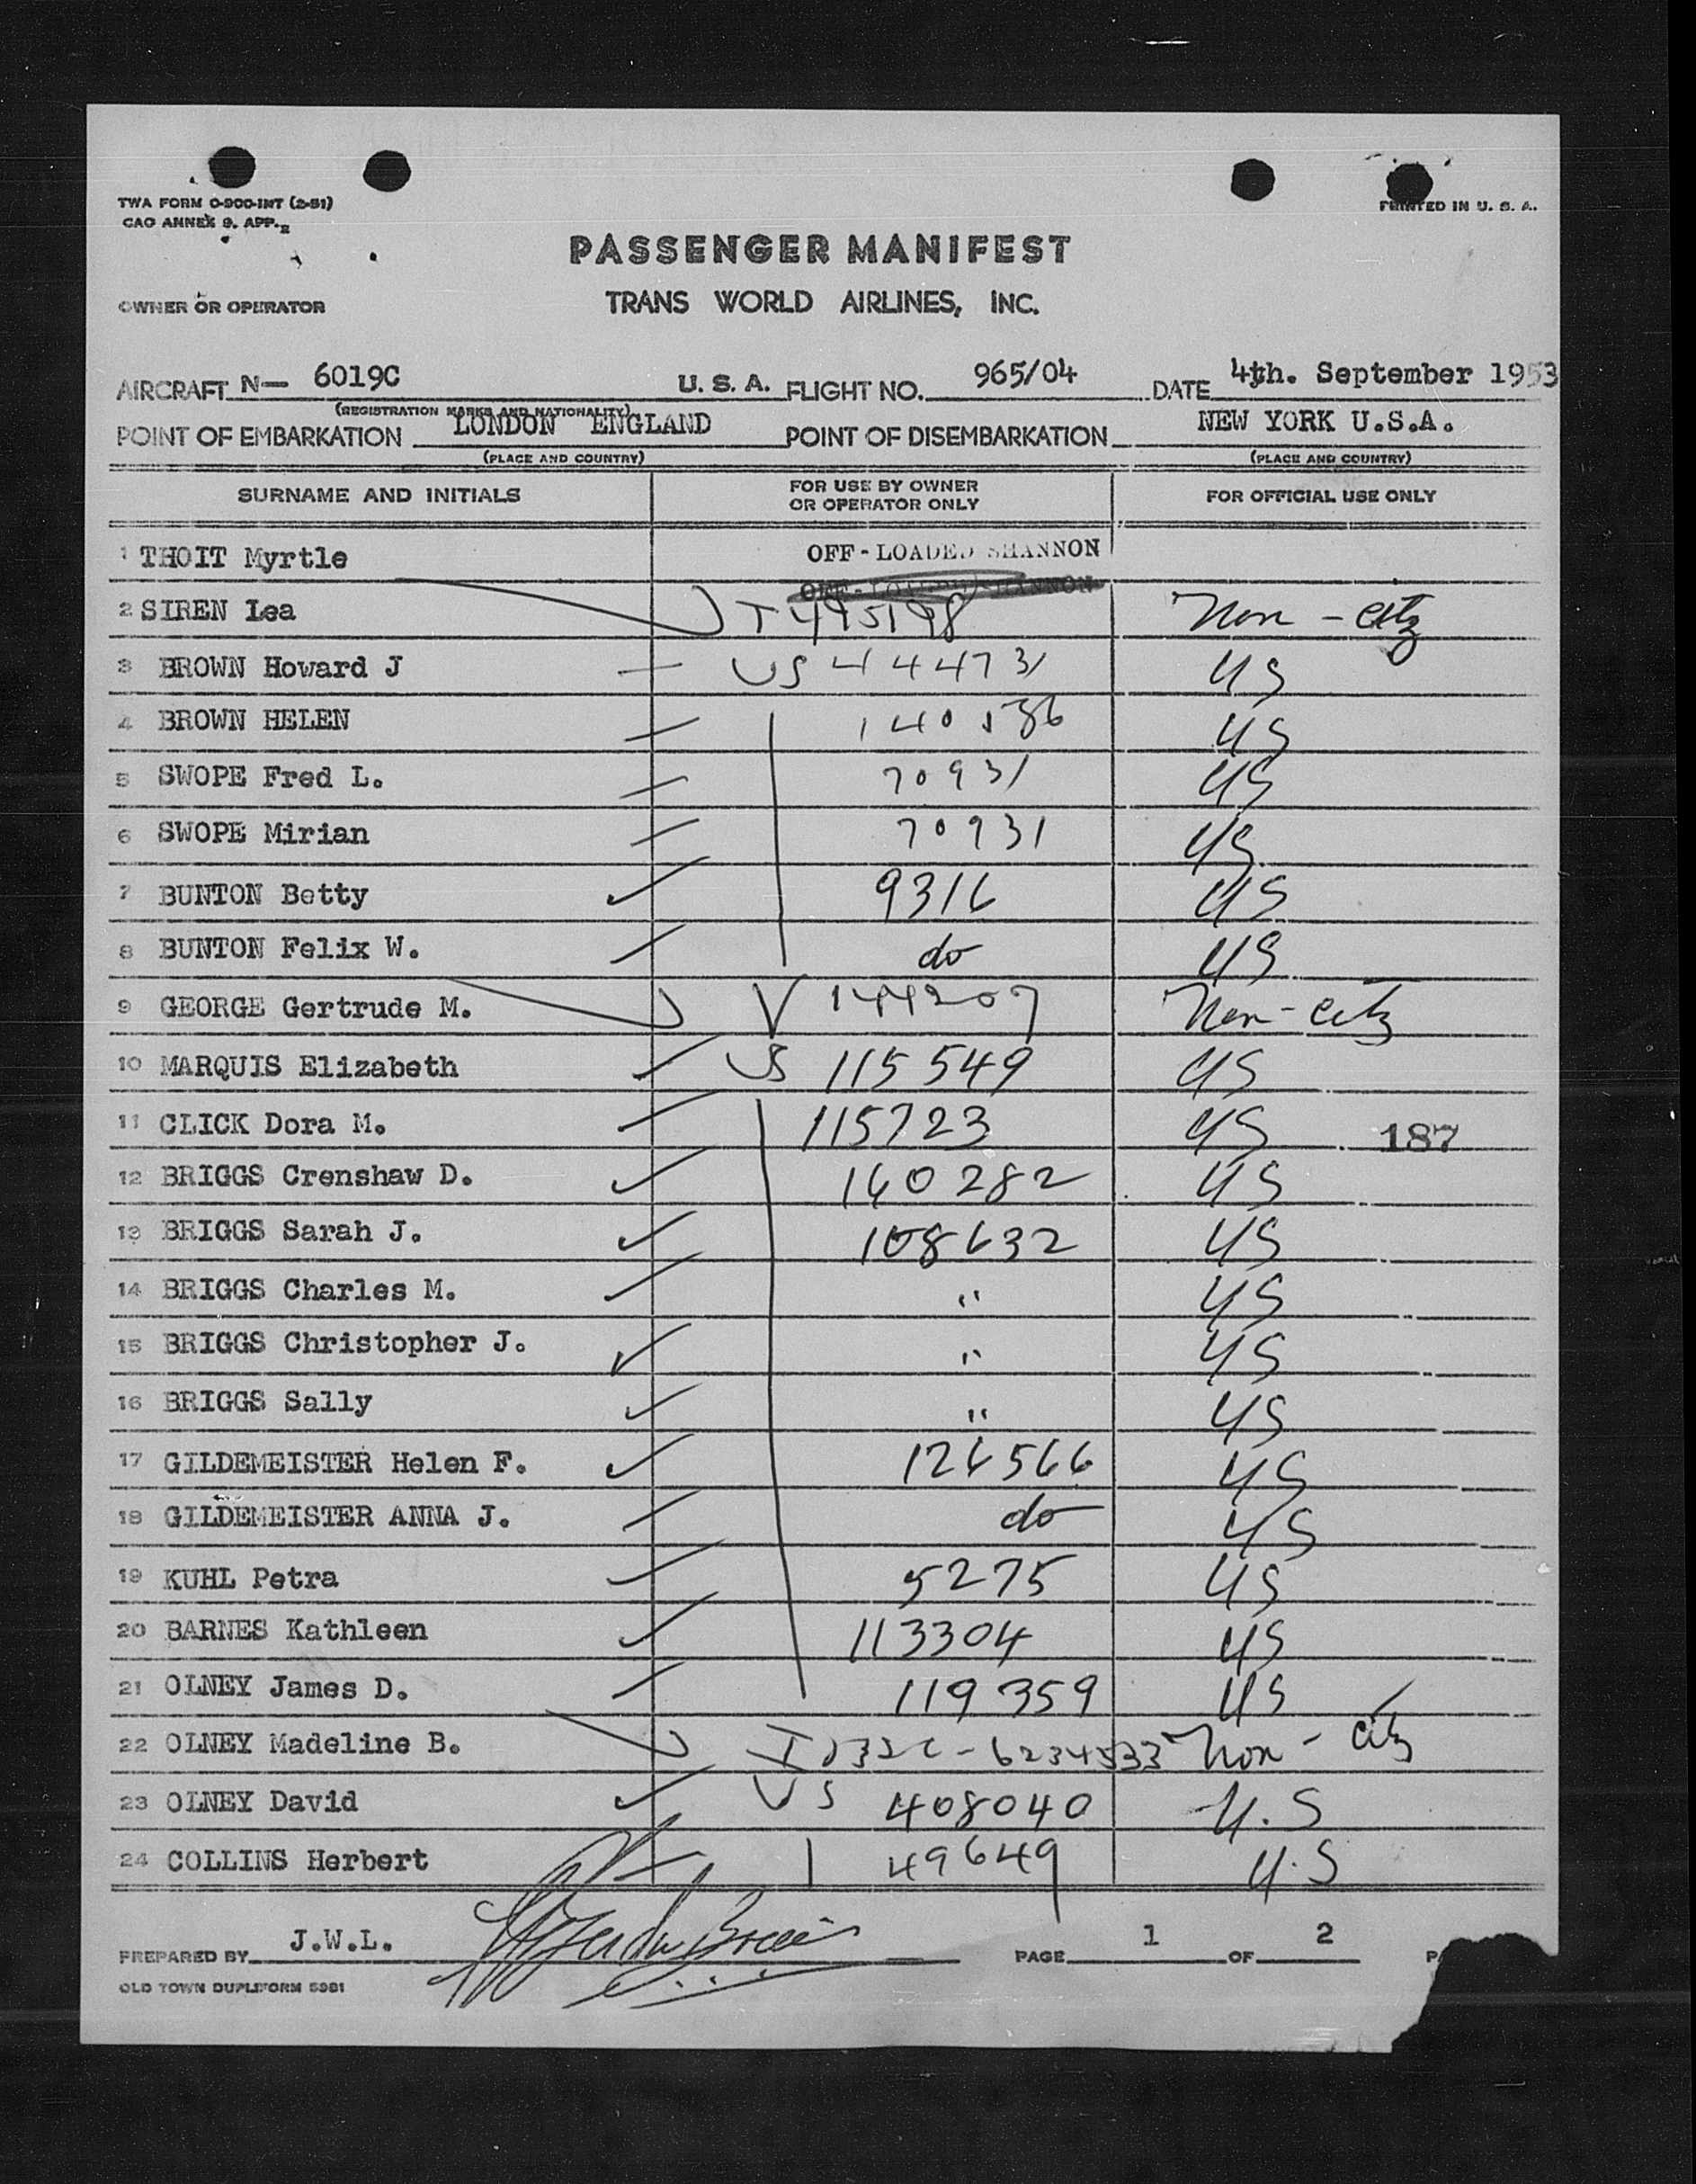 TWA FORM O-900-INT (2-51)
CAO ANNEX 9. APP. 2
PRINTED IN U. S. A.
PASSENGER MANIFEST
OWNER OR OPERATOR TRANS WORLD AIRLINES, INC.
AIRCRAFT N— 6019C U. S. A. FLIGHT NO. 965/04 DATE 4th. September 1953
(REGISTRATION MARKS AND NATIONALITY)
POINT OF EMBARKATION LONDON ENGLAND POINT OF DISEMBARKATION NEW YORK U.S.A.
(PLACE AND COUNTRY) (PLACE AND COUNTRY)
SURNAME AND INITIALS FOR USE BY OWNER OR OPERATOR ONLY FOR OFFICIAL USE ONLY
1 THOIT Myrtle OFF - LOADED SHANNON
OFF - LOADED SHANNON
2 SIREN Lea T 495198 Non - citz
3 BROWN Howard J US 444731 US
4 BROWN HELEN 140586 US
5 SWOPE Fred L. 70931 US
6 SWOPE Mirian 70931 US
7 BUNTON Betty 9316 US
8 BUNTON Felix W. do US
9 GEORGE Gertrude M. V 144207 Non - citz
10 MARQUIS Elizabeth US 115549 US
11 CLICK Dora M. 115723 US 187
12 BRIGGS Crenshaw D. 160282 US
13 BRIGGS Sarah J. 108632 US
14 BRIGGS Charles M. " US
15 BRIGGS Christopher J. " US
16 BRIGGS Sally " US
17 GILDEMEISTER Helen F. 126566 US
18 GILDEMEISTER ANNA J. do US
19 KUHL Petra 5275 US
20 BARNES Kathleen 113304 US
21 OLNEY James D. 119359 US
22 OLNEY Madeline B. Non - citz
23 OLNEY David US 408040 U.S
24 COLLINS Herbert 49649 U.S
PREPARED BY J.W.L. PAGE 1 OF 2
OLD TOWN DUPLIFORM 5981